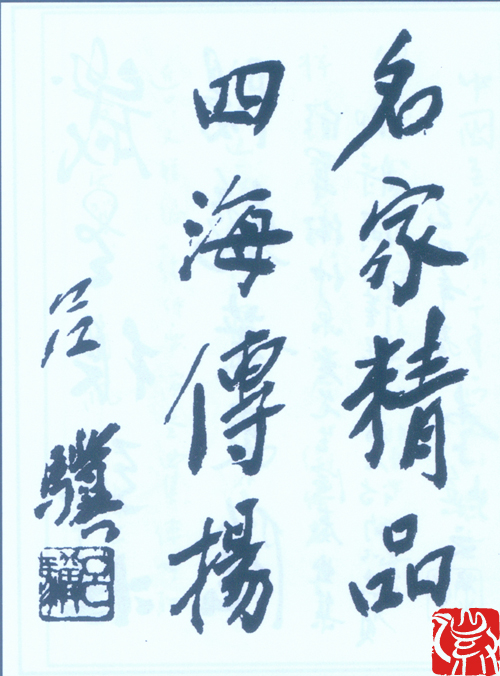 名家精品
四海傳揚
吕驥